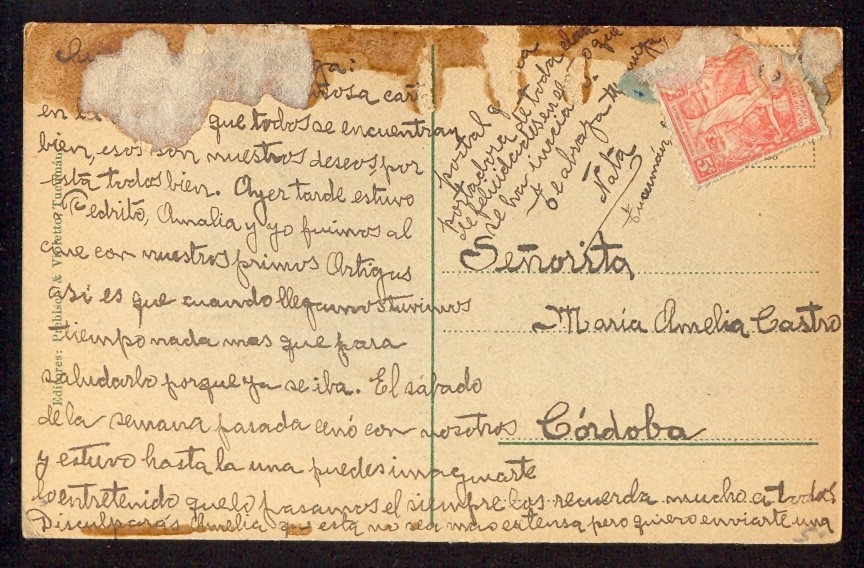 en la que todos se encuentran
bien, esos son nuestros deseos, por
esta todos bien. Ayer tarde estuvo
Pedrito, Amalia y yo fuimos al
cine con nuestros primos Artigas
si es que cuando llegamos tuvimos
tiempo nada mas que para
saludarlo porque ya se iba. El sábado
de la semana pasada cenó con nosotros
y estuvo hasta la una puedes imaginarte
lo entretenido que lo pasamos el siempre las recuerda mucho a todas
Disculparás Amelia que esta no sea mas extensa pero quiero enviarte una
postal
portadora de toda
de felicidades en el año que
se ha iniciado.
Te abraza tu amiga
Nata
Tucumán,
Señorita
María Amelia Castro
Córdoba
Editores: & Violetto, Tucumán
5c